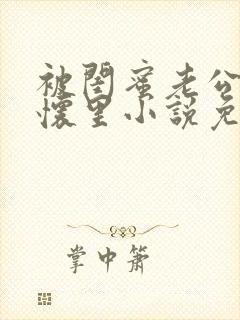 被閨蜜老公
懷里小說免
掌中簫